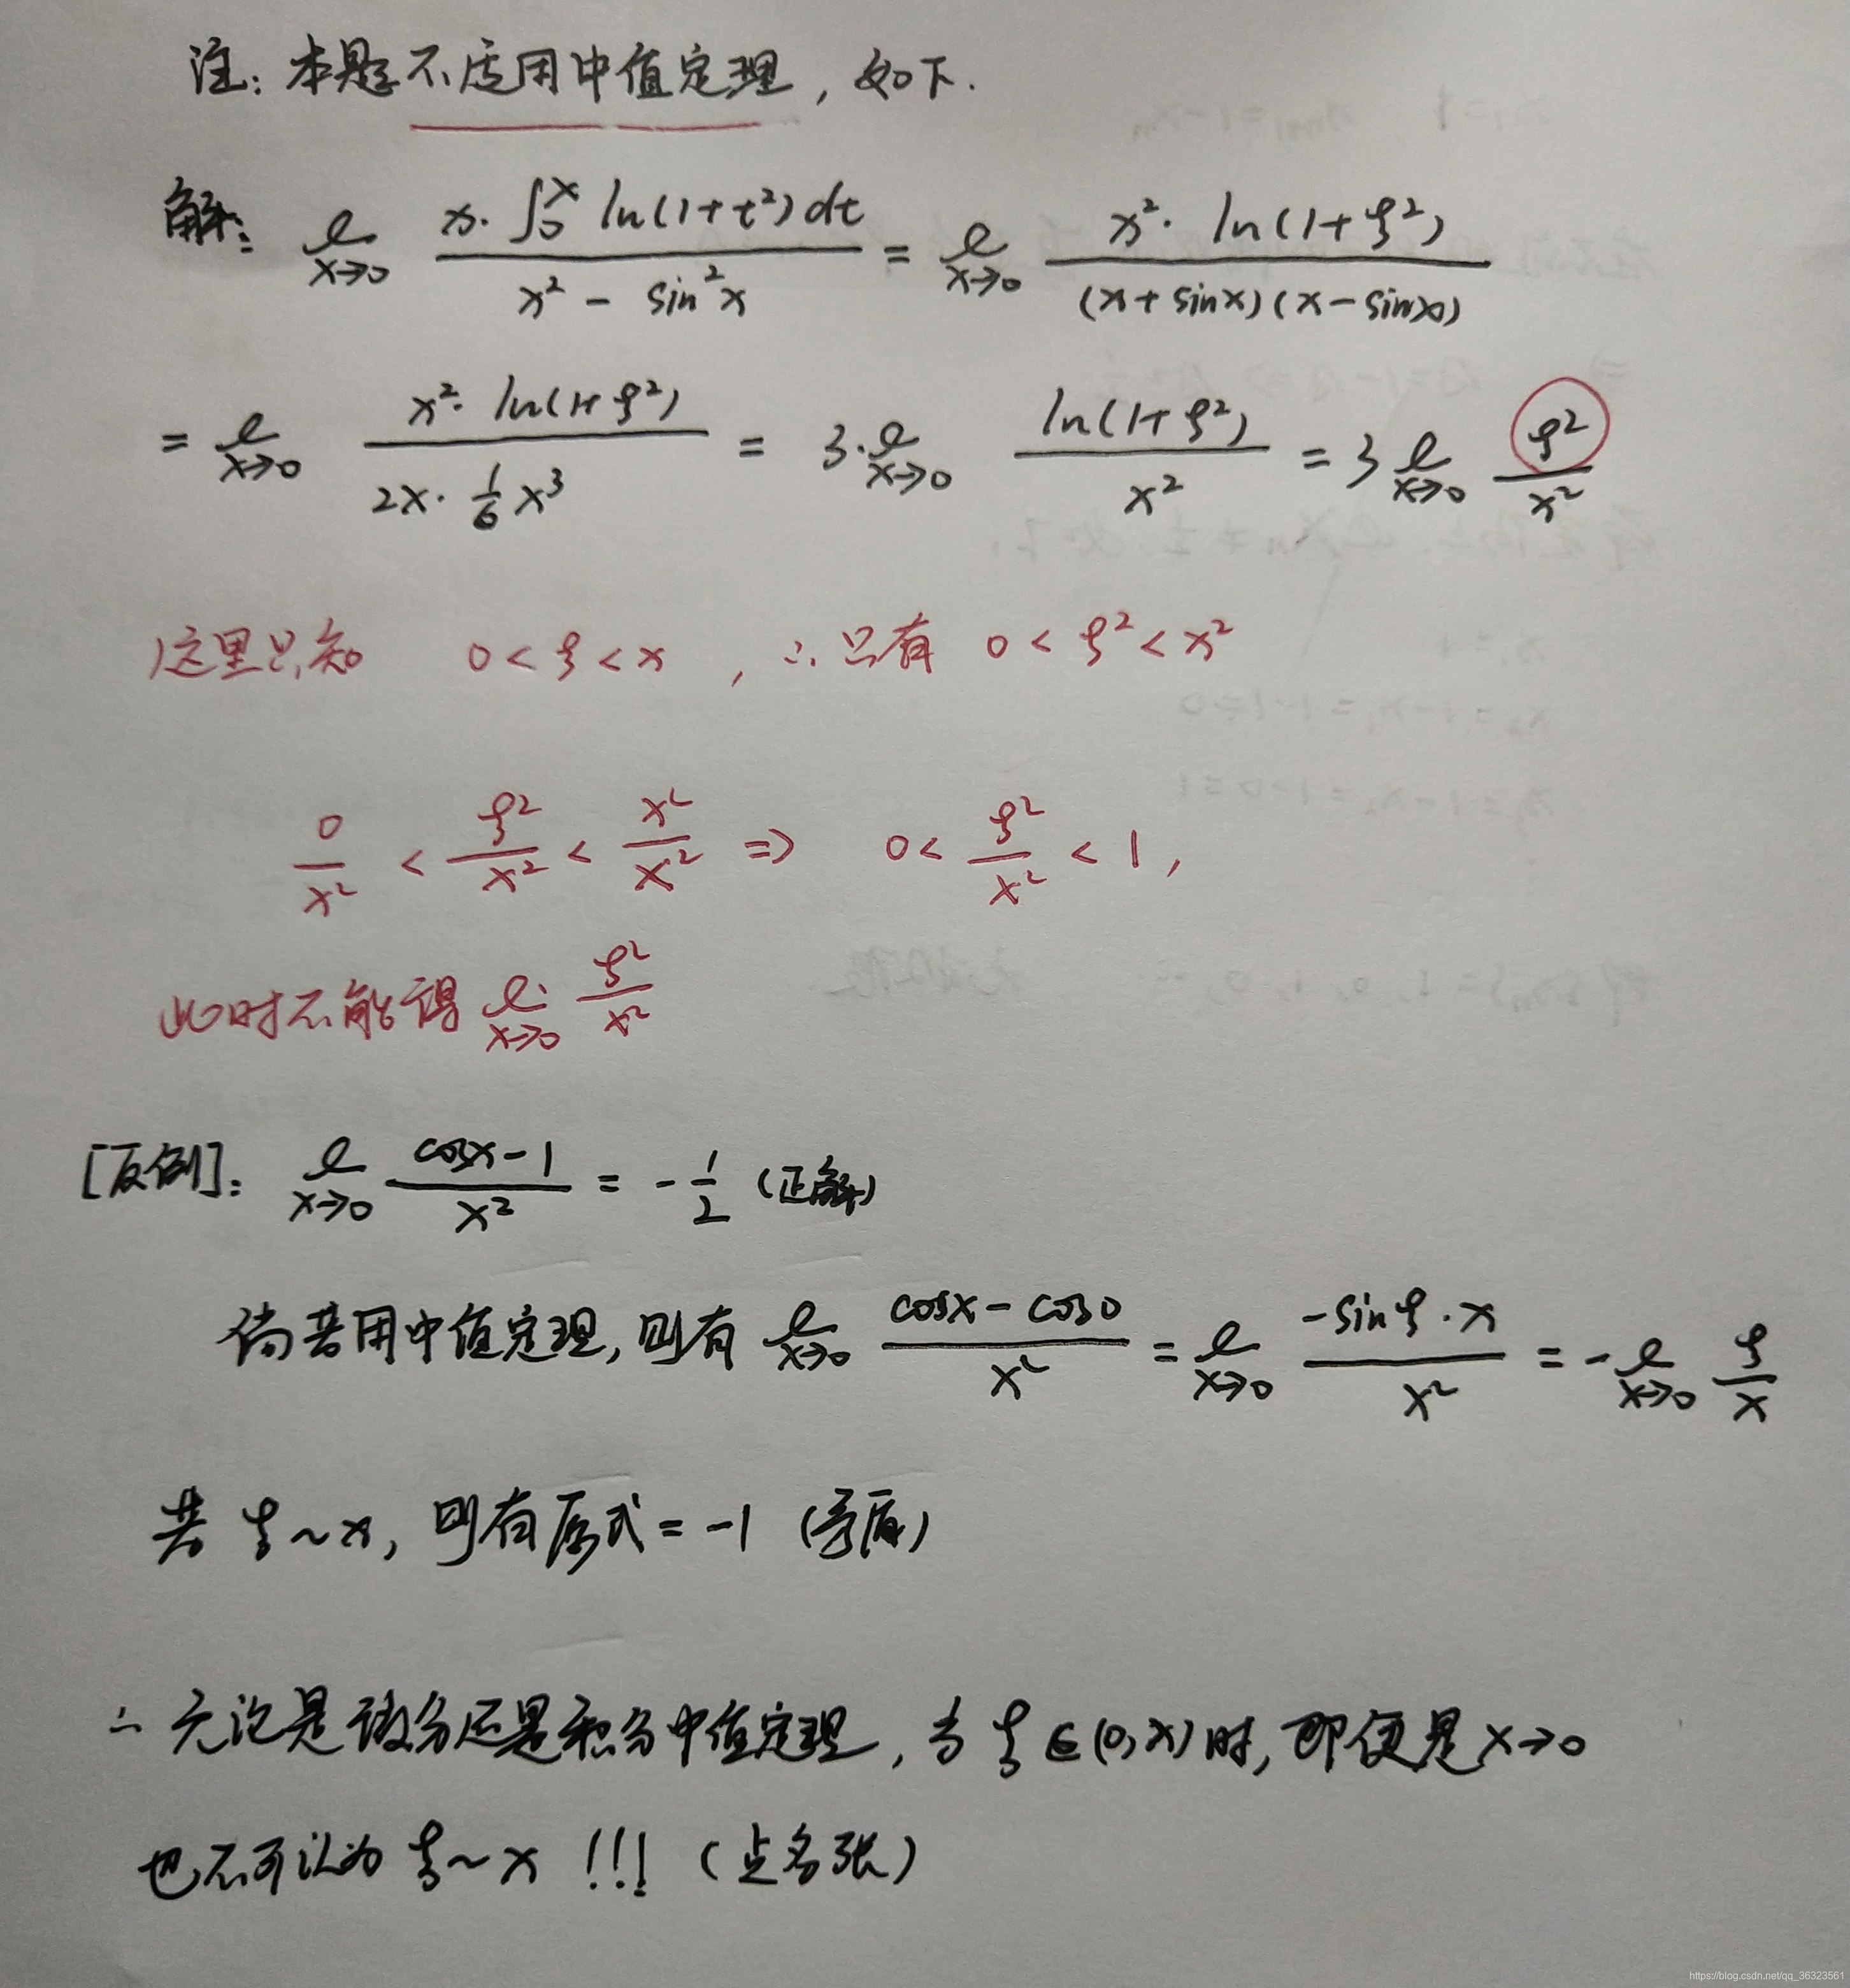 注: 本题不适用中值定理, 如下.
解: ℓ x→0 x·∫₀ˣ ln(1+t²)dt / x² - sin²x = ℓ x→0 x²· ln(1+ξ²) / (x+sinx)(x-sinx)
= ℓ x→0 x²· ln(1+ξ²) / 2x·1/6 x³ = 3·ℓ x→0 ln(1+ξ²) / x² = 3 ℓ x→0 ξ² / x²
这里只知 0<ξ<x , ∴只有 0<ξ²<x²
0/x² < ξ²/x² < x²/x² ⇒ 0< ξ²/x² < 1,
此时不能得 ℓ x→0 ξ²/x²
[反例]: ℓ x→0 cosx-1 / x² = -1/2 (正解)
倘若用中值定理, 则有 ℓ x→0 cosx-cos0 / x² = ℓ x→0 -sinξ·x / x² = -ℓ x→0 ξ/x
若 ξ~x, 则有原式=-1 (矛盾)
∴ 无论是微分还是积分中值定理, 当 ξ∈(0,x)时, 即便是x→0
也不可认为 ξ~x !!! (点名张)
https://blog.csdn.net/qq_36323561